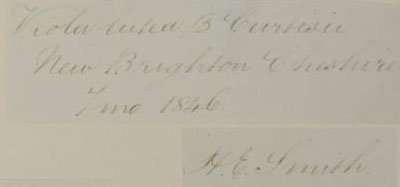 Viola lutea β Curtisii
New Brighton Cheshire
7mo. 1846.
H. E. Smith.